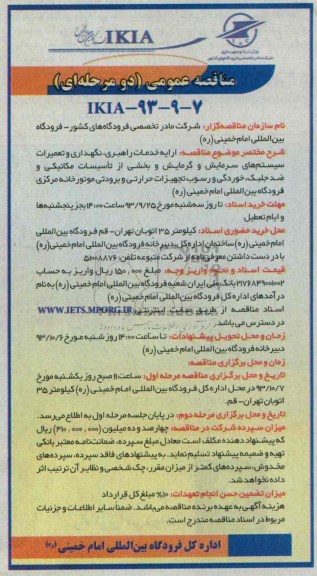 IKIA
مناقصه عمومی (دو مرحله‌ای)
IKIA-۹۳-۹-۷
نام سازمان مناقصه‌گزار: شرکت مادر تخصصی فرودگاه‌های کشور - فرودگاه
بین‌المللی امام خمینی (ره)
شرح مختصر موضوع مناقصه: ارایه خدمات راهبری، نگهداری و تعمیرات
سیستم‌های سرمایش و گرمایش و بخشی از تأسیسات مکانیکی و
ضد جلبک، خوردگی و رسوب تجهیزات حرارتی و برودتی موتورخانه مرکزی
فرودگاه بین‌المللی امام خمینی (ره)
مهلت خرید اسناد: تا روز سه‌شنبه مورخ ۹۳/۹/۲۵ ساعت ۱۴:۰۰ بجز پنجشنبه‌ها
و ایام تعطیل
محل خرید حضوری اسناد: کیلومتر ۳۵ اتوبان تهران- قم فرودگاه بین‌المللی
امام خمینی (ره) ساختمان اداره کل دبیرخانه فرودگاه بین‌المللی امام خمینی (ره)
با در دست داشتن معرفی‌نامه از شرکت متبوعه تلفن: ۵۱۰۰۸۸۷۶
قیمت اسناد و نحوه واریز وجه: مبلغ ۱۵۰,۰۰۰ ریال واریز به حساب
۲۱۷۶۸۴۹۰۰۱۰۰۲ بانک ملی ایران شعبه فرودگاه بین‌المللی امام خمینی (ره) به نام
درآمدهای اداره کل فرودگاه بین‌المللی امام خمینی (ره)
اسناد مناقصه از طریق سایت اینترنتی WWW.IETS.MPORG.IR
در دسترس می‌باشد.
زمان و محل تحویل پیشنهادات: تا ساعت ۱۴:۰۰ روز شنبه مورخ ۹۳/۱۰/۶
دبیرخانه فرودگاه بین‌المللی امام خمینی (ره)
زمان و محل برگزاری مناقصه:
تاریخ و محل برگزاری مناقصه مرحله اول: ساعت ۱۱ صبح روز یکشنبه مورخ
۹۳/۱۰/۷ در محل اداره کل فرودگاه بین‌المللی امام خمینی (ره) کیلومتر ۳۵
اتوبان تهران- قم.
تاریخ و محل برگزاری مرحله دوم: در پایان جلسه مرحله اول به اطلاع می‌رسد.
میزان سپرده شرکت در مناقصه: چهارصد و ده میلیون (۴۱۰,۰۰۰,۰۰۰) ریال
که پیشنهاد دهنده مکلف است معادل مبلغ سپرده، ضمانت‌نامه معتبر بانکی
تهیه و ضمیمه پیشنهاد تسلیم نماید. به پیشنهادهای فاقد سپرده، سپرده‌های
مخدوش، سپرده‌های کمتر از میزان مقرر، چک شخصی و نظایر آن ترتیب اثر
داده نخواهد شد.
میزان تضمین حسن انجام تعهدات: ۱۰٪ مبلغ کل قرارداد
هزینه آگهی به عهده برنده مناقصه می‌باشد. ضمنا سایر اطلاعات و جزییات
مربوط در اسناد مناقصه مندرج است.
اداره کل فرودگاه بین‌المللی امام خمینی (ره)